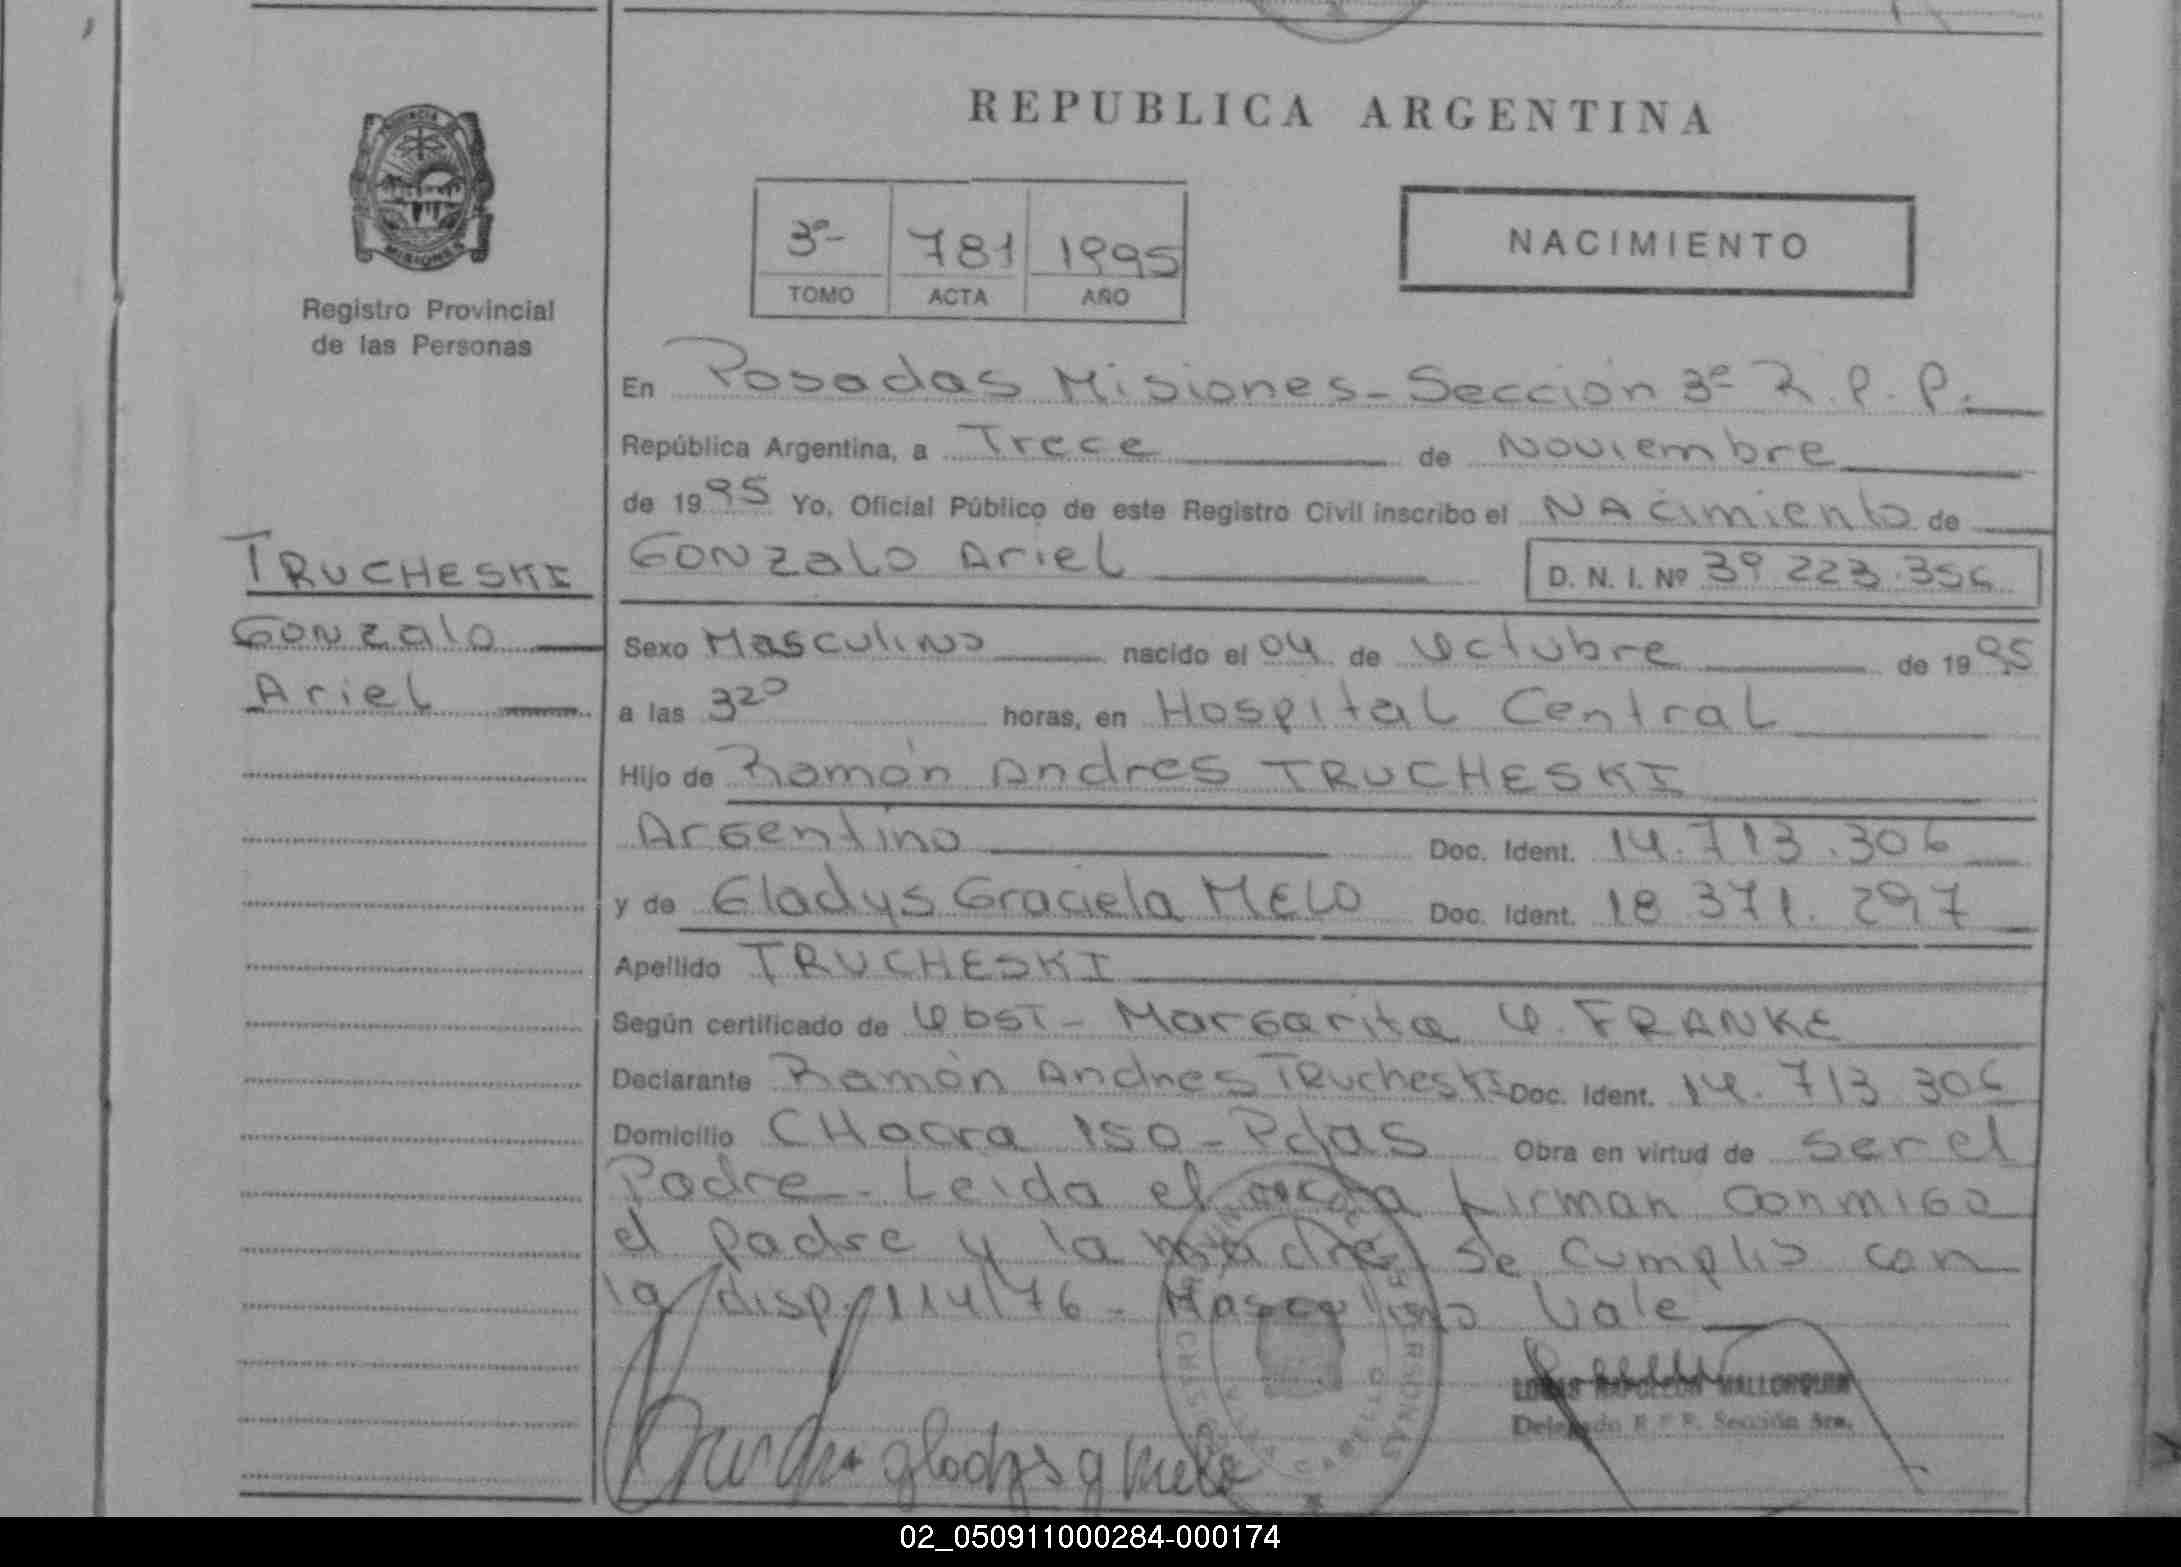 REPUBLICA ARGENTINA
PROVINCIA
MISIONES
Registro Provincial
de las Personas
3º- 781 1995
TOMO ACTA AÑO
NACIMIENTO
TRUCHESKI
Gonzalo
Ariel
En Posadas Misiones - Sección 3ª R.P.P.
República Argentina, a Trece de Noviembre
de 1995 Yo, Oficial Público de este Registro Civil inscribo el NAcimiento de
Gonzalo Ariel D. N. I. Nº 39 223.356
Sexo Masculino nacido el 04 de Octubre de 1995
a las 3 20 horas, en Hospital Central
Hijo de Ramón Andres TRUCHESKI
Argentino Doc. Ident. 14.713.306
y de Gladys Graciela MELO Doc. Ident. 18 371.297
Apellido TRUCHESKI
Según certificado de Obst - Margarita O. FRANKE
Declarante Ramón Andres Trucheski Doc. Ident. 14.713 306
Domicilio CHacra 150 - Pdas Obra en virtud de ser el
Padre - Leida el acta firman conmigo
el padre y la madre se cumplio con
la disp. 114/76 - Masculino Vale
gladys g melo
NAPOLEON MALLORQUIN
Delegado R.P.P. Sección 3ra.
02_050911000284-000174